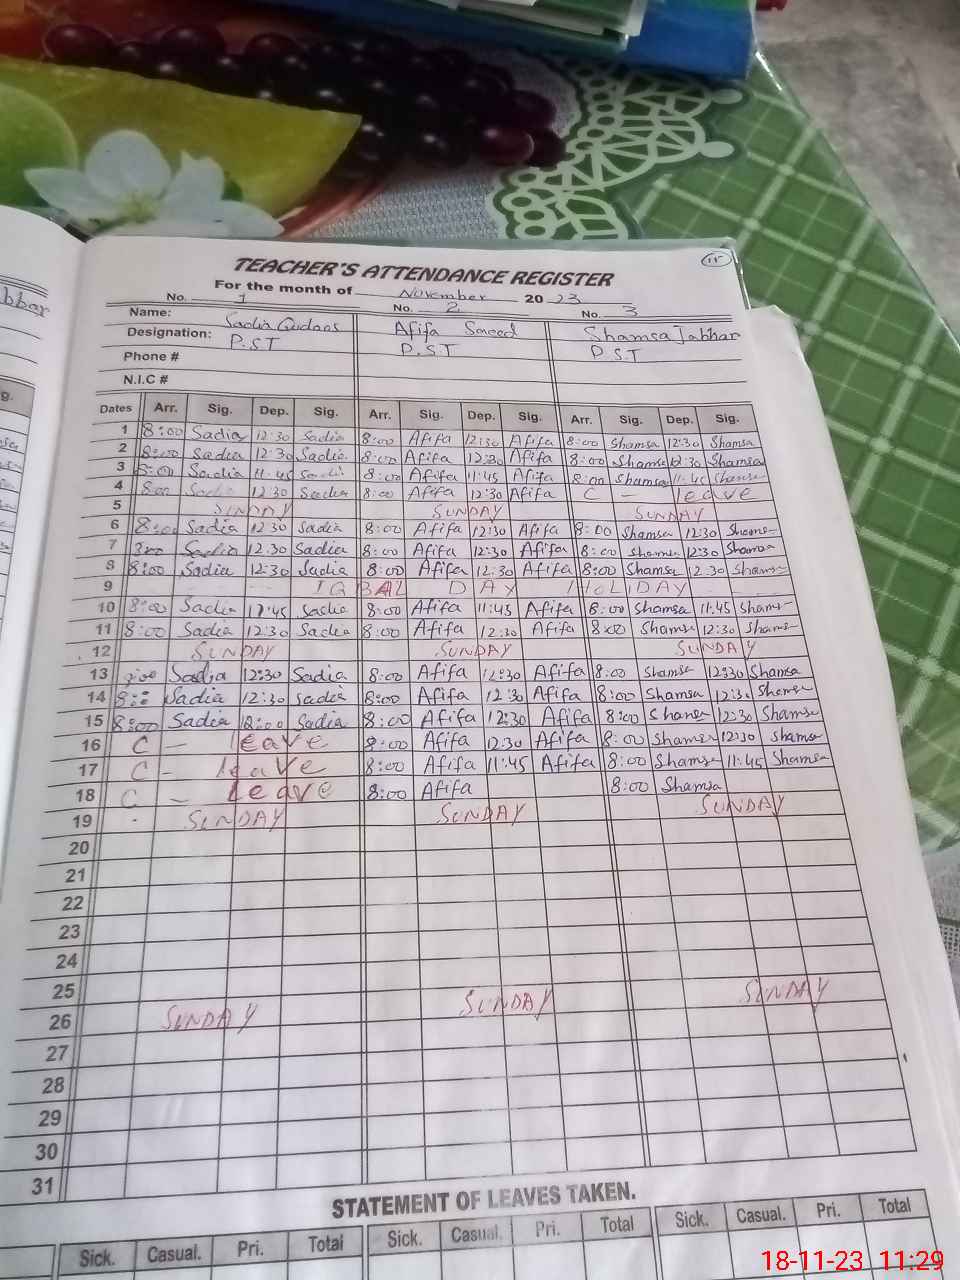 TEACHER'S ATTENDANCE REGISTER
For the month of November 2023
No. 1 No. 2 No. 3
Name: Sadia Afifa Saeed Shamsa Jabbar
Designation: P.S.T P.S.T P.S.T
Phone #
N.I.C #
Dates Arr. Sig. Dep. Sig. Arr. Sig. Dep. Sig. Arr. Sig. Dep. Sig.
1 8:00 Sadia 12:30 Sadia 8:00 Afifa 12:30 Afifa 8:00 Shamsa 12:30 Shamsa
2 8:00 Sadia 12:30 Sadia 8:00 Afifa 12:30 Afifa 8:00 Shamsa 12:30 Shamsa
3 8:00 Sadia 11:45 Sadia 8:00 Afifa 11:45 Afifa 8:00 Shamsa 11:45 Shamsa
4 8:00 Sadia 12:30 Sadia 8:00 Afifa 12:30 Afifa C - leave
5 SUNDAY SUNDAY SUNDAY
6 8:00 Sadia 12:30 Sadia 8:00 Afifa 12:30 Afifa 8:00 Shamsa 12:30 Shamsa
7 8:00 Sadia 12:30 Sadia 8:00 Afifa 12:30 Afifa 8:00 Shamsa 12:30 Shamsa
8 8:00 Sadia 12:30 Sadia 8:00 Afifa 12:30 Afifa 8:00 Shamsa 12:30 Shamsa
9 IQBAL DAY HOLIDAY
10 8:00 Sadia 11:45 Sadia 8:00 Afifa 11:45 Afifa 8:00 Shamsa 11:45 Shamsa
11 8:00 Sadia 12:30 Sadia 8:00 Afifa 12:30 Afifa 8:00 Shamsa 12:30 Shamsa
12 SUNDAY SUNDAY SUNDAY
13 8:00 Sadia 12:30 Sadia 8:00 Afifa 12:30 Afifa 8:00 Shamsa 12:30 Shamsa
14 Sadia 12:30 Sadia 8:00 Afifa 12:30 Afifa 8:00 Shamsa 12:30 Shamsa
15 8:00 Sadia Sadia 8:00 Afifa 12:30 Afifa 8:00 Shamsa 12:30 Shamsa
16 C - leave 8:00 Afifa 12:30 Afifa 8:00 Shamsa 12:30 Shamsa
17 C - leave 8:00 Afifa 11:45 Afifa 8:00 Shamsa 11:45 Shamsa
18 C - Leave 8:00 Afifa 8:00 Shamsa
19 SUNDAY SUNDAY SUNDAY
20
21
22
23
24
25
26 SUNDAY SUNDAY SUNDAY
27
28
29
30
31
STATEMENT OF LEAVES TAKEN.
Sick. Casual. Pri. Total Sick. Casual. Pri. Total Sick. Casual. Pri. Total
18-11-23 11:29